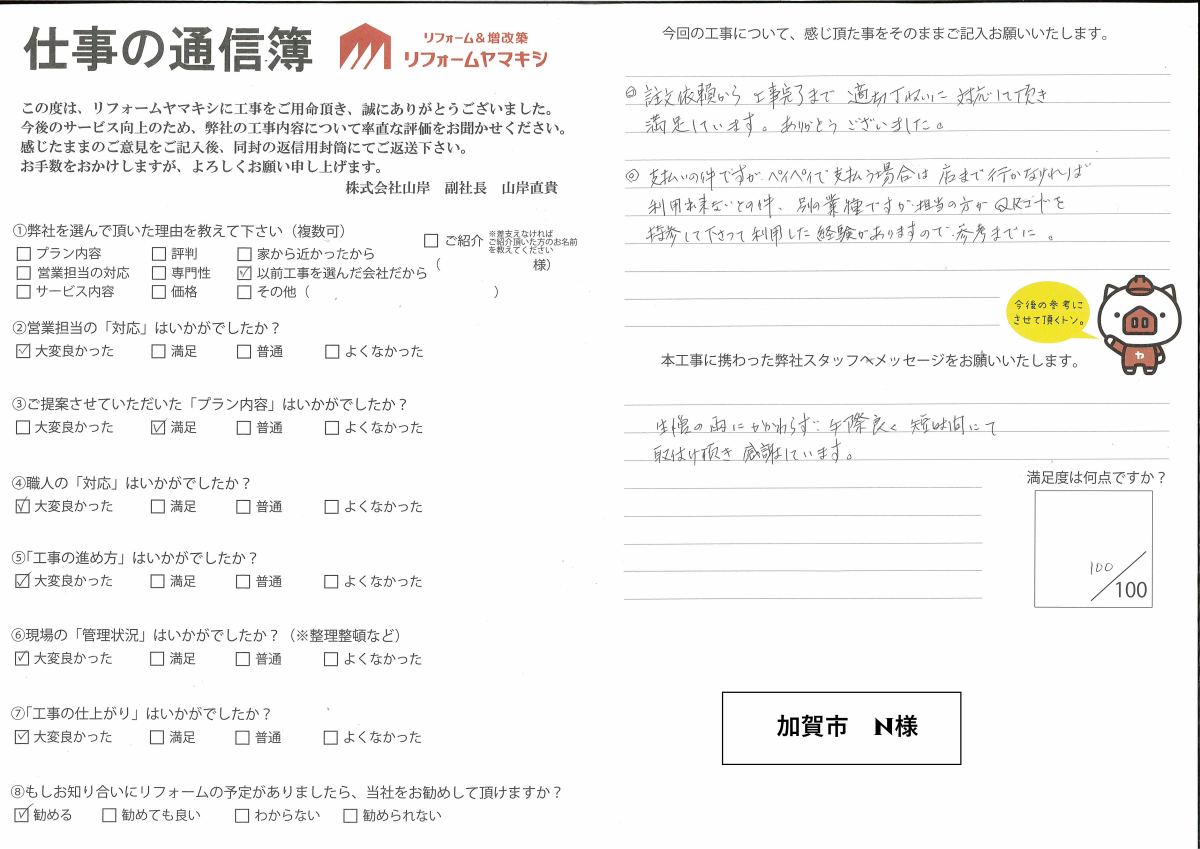 仕事の通信簿
リフォーム&増改築
リフォームヤマキシ
この度は、リフォームヤマキシに工事をご用命頂き、誠にありがとうございました。
今後のサービス向上のため、弊社の工事内容について率直な評価をお聞かせください。
感じたままのご意見をご記入後、同封の返信用封筒にてご返送下さい。
お手数をおかけしますが、よろしくお願い申し上げます。
株式会社山岸 副社長 山岸直貴
①弊社を選んで頂いた理由を教えて下さい(複数可)
□プラン内容 □評判 □家から近かったから
□営業担当の対応 □専門性 ☑以前工事を選んだ会社だから
□サービス内容 □価格 □その他( )
□ご紹介
※差支えなければ
ご紹介頂いた方のお名前
を教えてください
( 様)
②営業担当の「対応」はいかがでしたか?
☑大変良かった □満足 □普通 □よくなかった
③ご提案させていただいた「プラン内容」はいかがでしたか?
□大変良かった ☑満足 □普通 □よくなかった
④職人の「対応」はいかがでしたか?
☑大変良かった □満足 □普通 □よくなかった
⑤「工事の進め方」はいかがでしたか?
☑大変良かった □満足 □普通 □よくなかった
⑥現場の「管理状況」はいかがでしたか?(※整理整頓など)
☑大変良かった □満足 □普通 □よくなかった
⑦「工事の仕上がり」はいかがでしたか?
☑大変良かった □満足 □普通 □よくなかった
⑧もしお知り合いにリフォームの予定がありましたら、当社をお勧めして頂けますか?
☑勧める □勧めても良い □わからない □勧められない
今回の工事について、感じ頂た事をそのままご記入お願いいたします。
◎ 註文依頼から 工事完了まで 適切丁寧に 対応して頂き
満足しています。ありがとうございました。
◎ 支払いの件ですが ペイペイで支払う場合は 店まで行かなければ
利用出来ないとの件、別の業種ですが担当の方がQRコードを
持参して下さって利用した経験がありますので、参考までに。
今後の参考に
させて頂くトン。
ヤ
本工事に携わった弊社スタッフへメッセージをお願いいたします。
生憎の雨にかかわらず 手際良く 短時間にて
取付け頂き 感謝しています。
満足度は何点ですか?
100/100
加賀市 N様